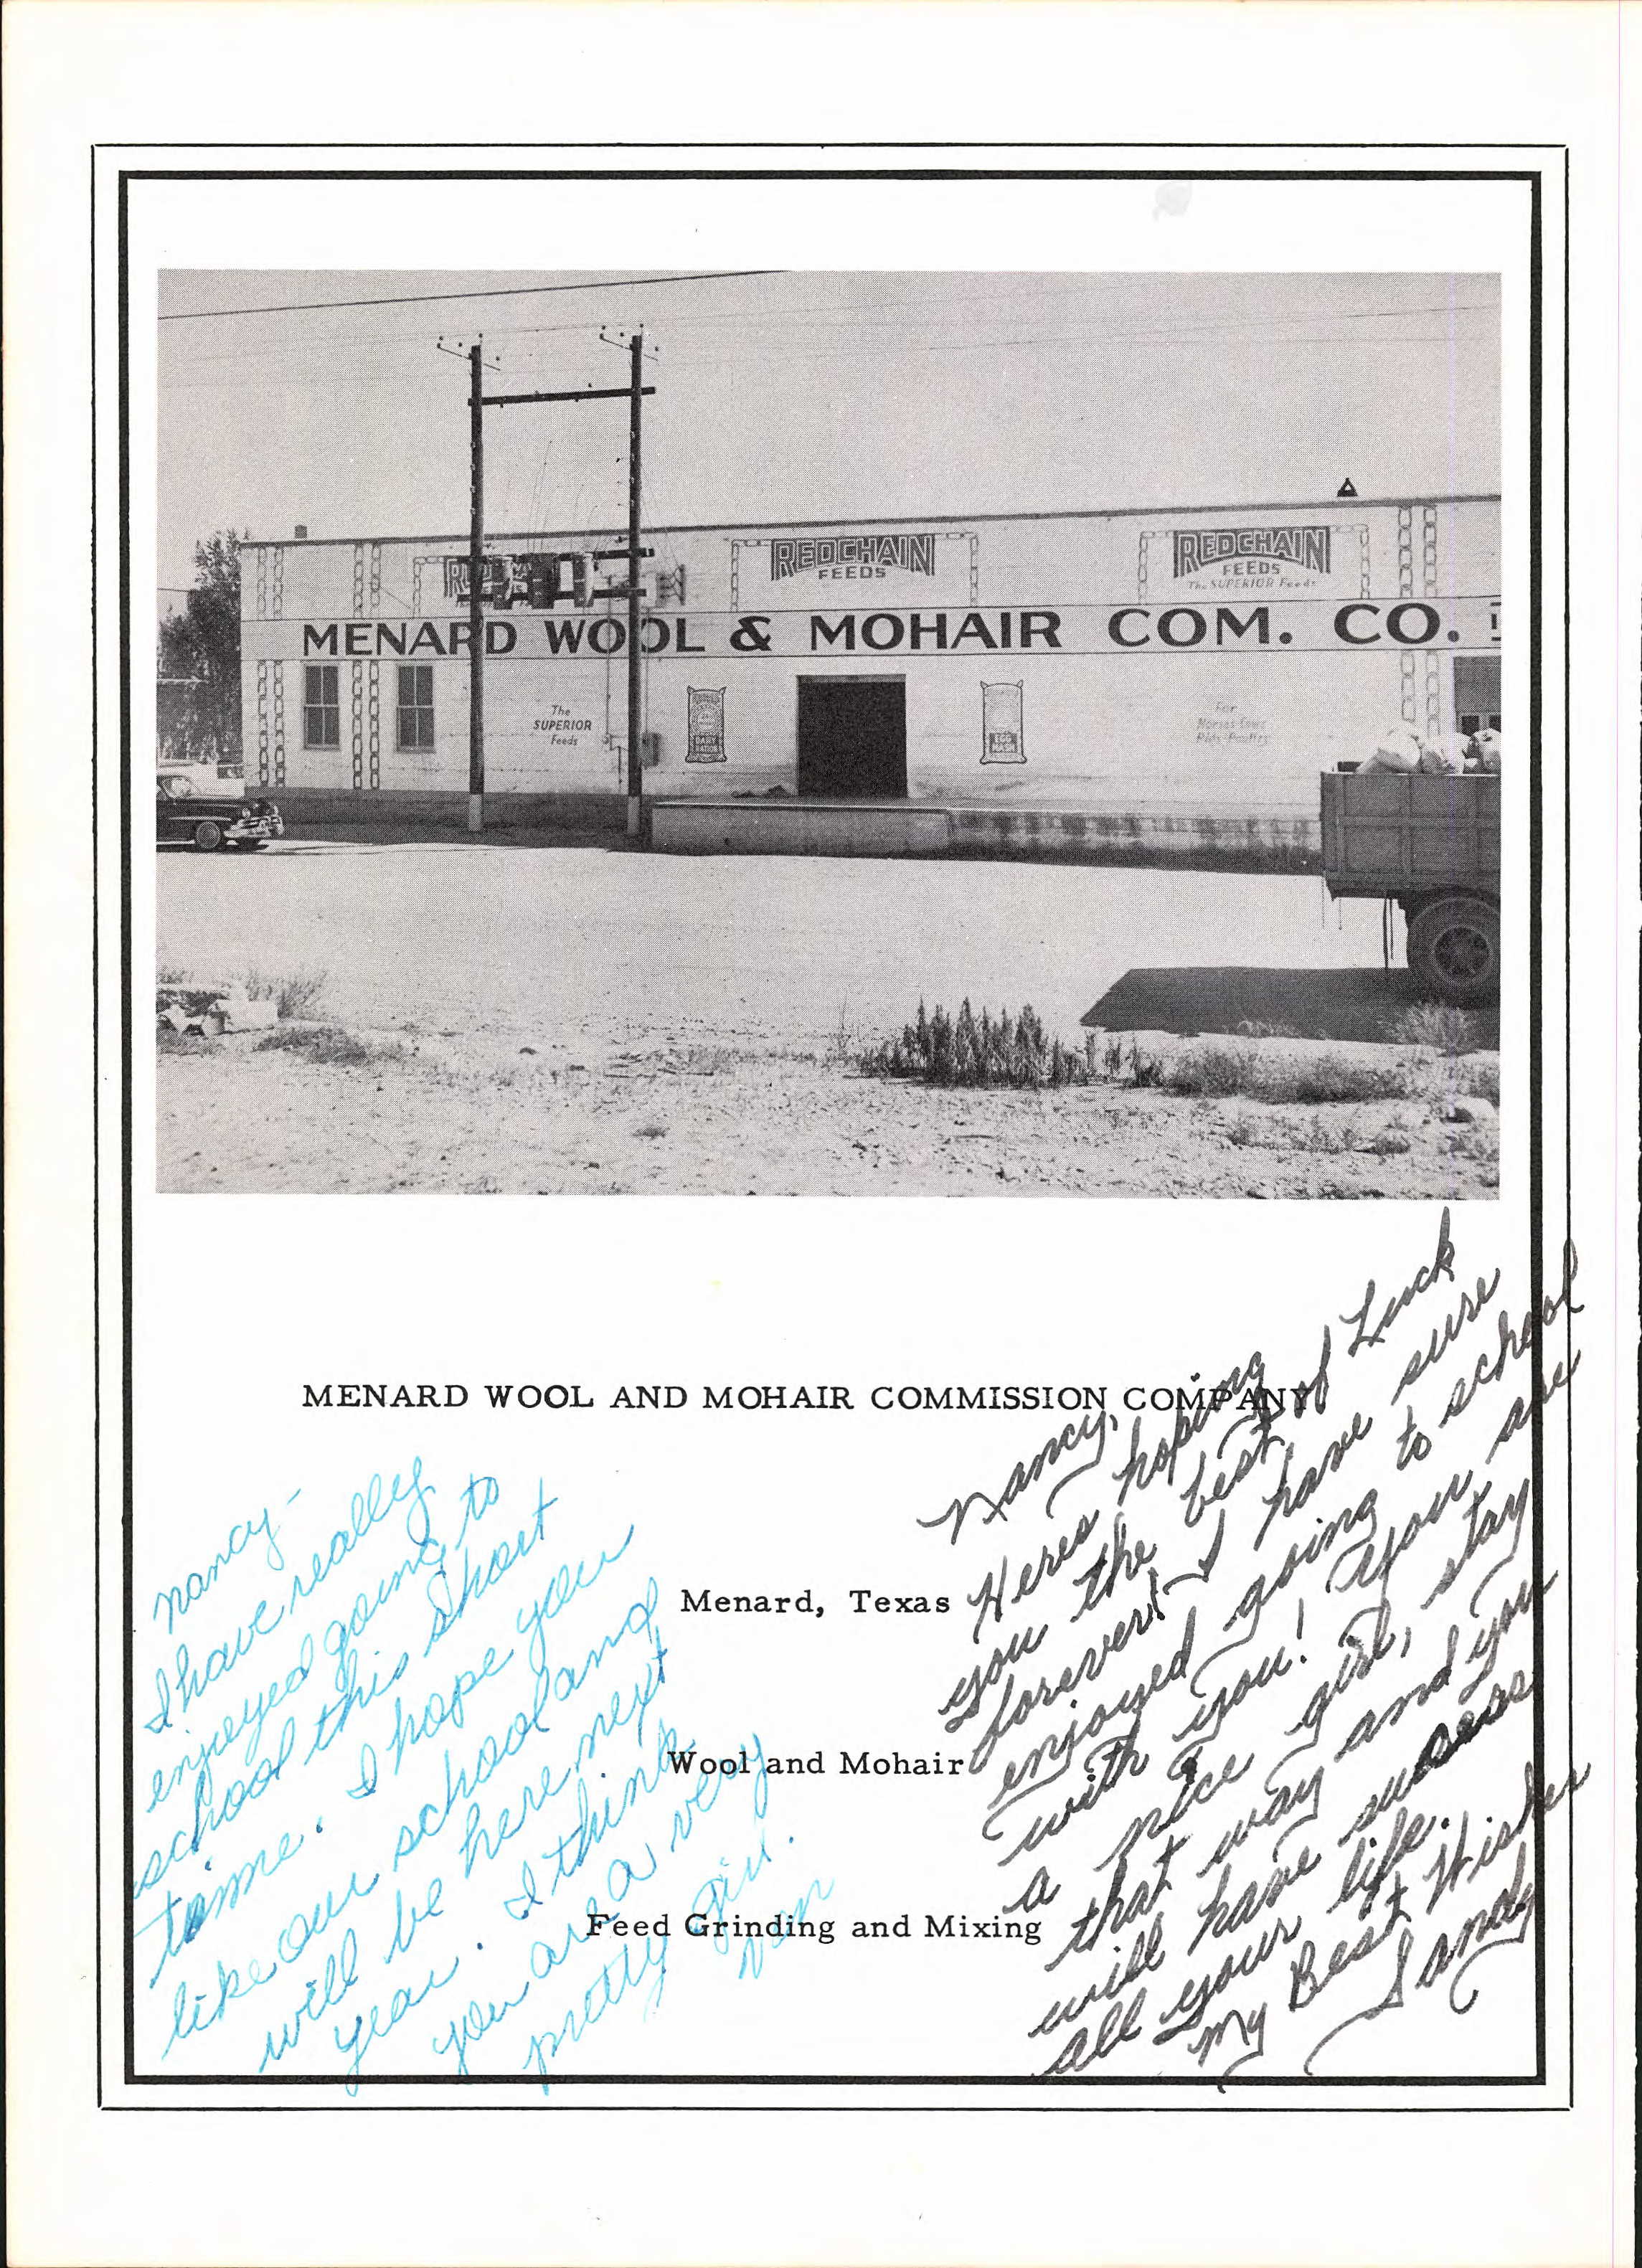 REDCHAIN
FEEDS
REDCHAIN
FEEDS
The SUPERIOR Feeds
MENARD WOOL & MOHAIR COM. CO.
The
SUPERIOR
Feeds
EGG
MASH
For
MENARD WOOL AND MOHAIR COMMISSION COMPANY
Menard, Texas
Wool and Mohair
Feed Grinding and Mixing
Nancy -
I have really
enjoyed going to
school this short
time. I hope you
like our school and
will be here next
year. I think
you are a very
pretty girl.
Nancy,
Heres hoping
you the best of Luck
forever! I have sure
enjoyed going to school
with you! You are
a nice girl, stay
that way and you
will have success
all your life.
My Best Wishes
Sandy